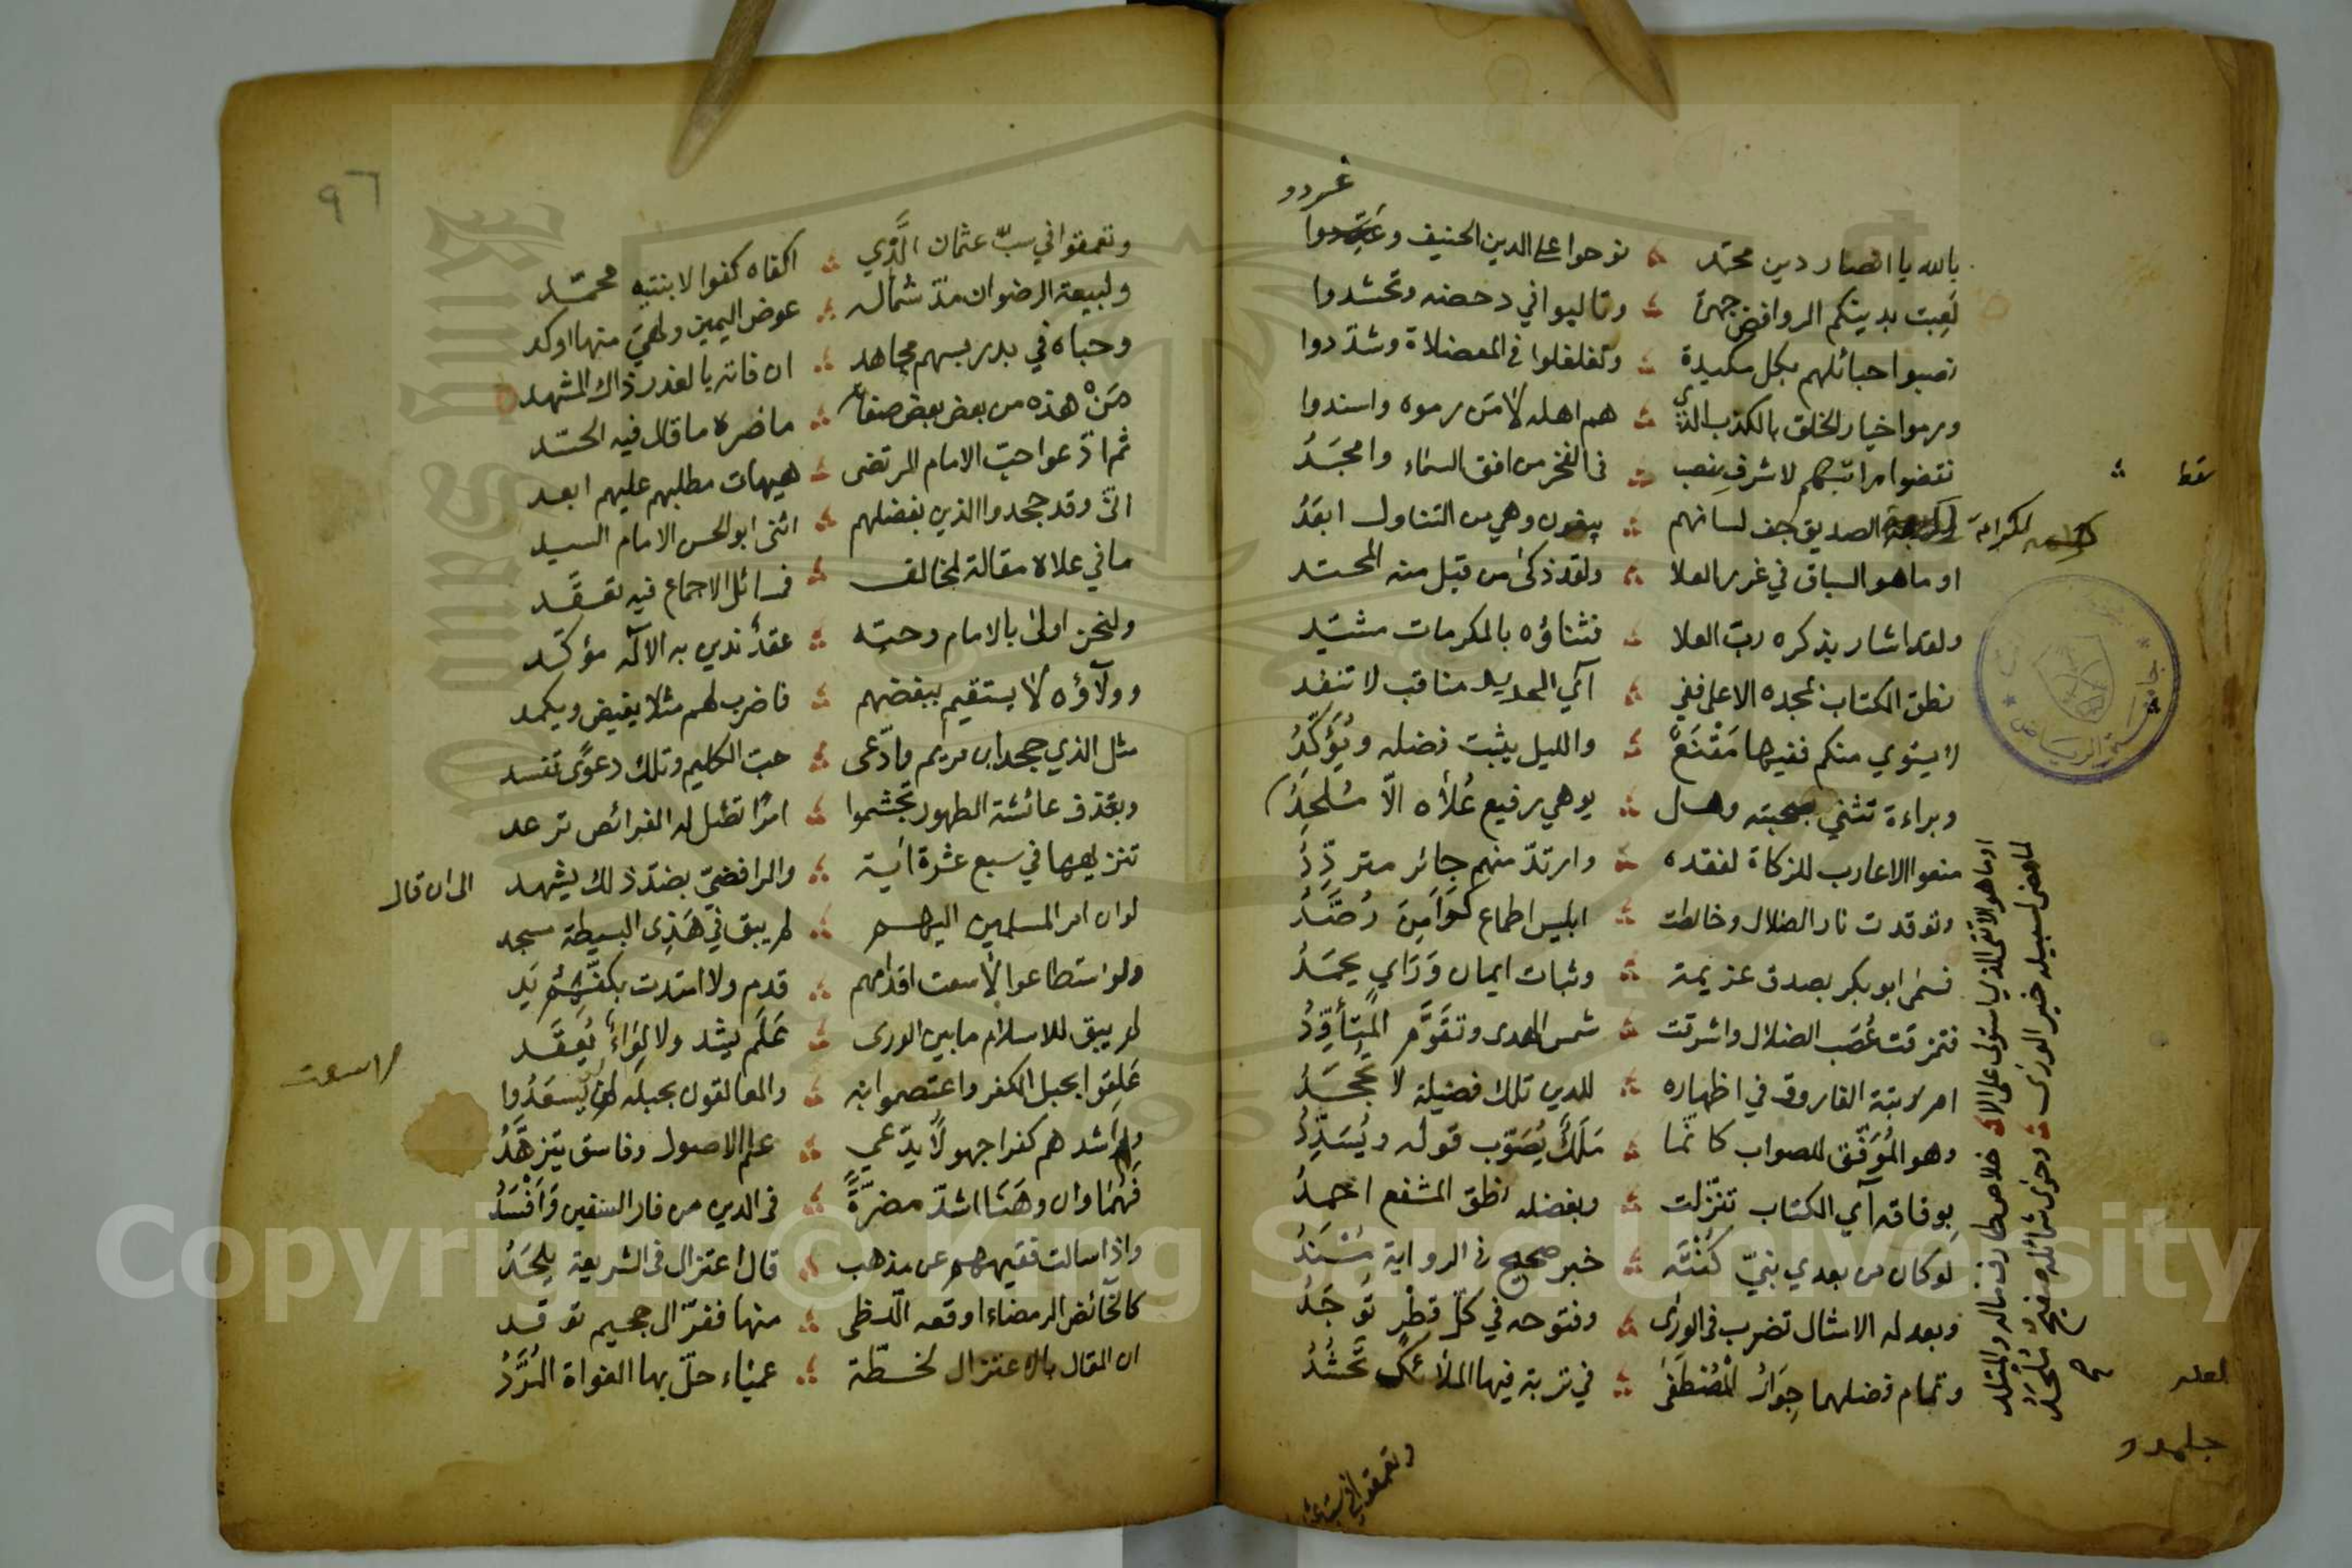 غردو
بالله يا انصار دين محمد ؞ نوحوا على الدين الحنيف وعددوا
لعبت بدينكم الروافض جهرة ؞ وتالبوا في دحضه وتحشدوا
نصبوا حبائلهم بكل مكيدة ؞ وتغلغلوا في المعضلاة وشدّدوا
ورموا خيار الخلق بالكذب الذي ؞ هم اهله لا من رموه واسندوا
نقضوا مراتبهم لاشرف منصب ؞ في الفخر من افق السماء وامجَدُ
الصديق جف لسانهم ؞ يبغون وهي من التناول ابعَدُ
لكرامة
سقط
او ما هو السباق في غرر العلا ؞ ولقد زكى من قبل منه المحتد
ولقد اشار بذكره ربّ العلا ؞ فثناؤه بالمكرمات مشيّد
نطق الكتاب بمجده الاعلى ففي ؞ آي الحديد مناقب لا تنفد
لا يستوي منكم ففيها مَقْنَعْ ؞ والليل يثبت فضله ويُؤَكِّدُ
وبراءة تثني بصحبته وهل ؞ يوهي رفيع عُلاه الّا مُلحِدُ
او ما هو الاتقى الذي استولى على الا ؞ خلاص طارف ماله والمتلد
لما مضى لسبيله خير الورى ؞ وحوى شمائله صفيح مُلْحَدُ صح
منعوا الاعارب للزكاة لفقده ؞ وارتدّ منهم جائر متردِّدُ
وتوقدت نار الضلال وخالطت ؞ ابليس اطماع كَوَامِنَ رُصَّدُ
فسمى ابو بكر بصدق عزيمة ؞ وثبات ايمان وَرَاي يحمَدُ
فتمزقت عُصَب الضلال واشرقت ؞ شمس الهدى وتقَوَّم المتأوِّدُ
ام رتبة الفاروق في اظهاره ؞ للدين تلك فضيلة لا تجحَدُ
وهو المُوَفّق للصواب كانّما ؞ مَلَكٌ يُصَوّب قوله ويُسَدِّدُ
بوفاقه آي الكتاب تنزّلت ؞ وبفضله نطق المشفع احمدُ
لو كان من بعدي نبيّ كُنْتَه ؞ خبر صحيح في الرواية مُسْنَدُ
وبعدله الامثال تضرب في الورى ؞ وفتوحه في كلّ قطْرٍ تُوجَدُ
وتمام فضلهما جِوَارُ المُصْطَفى ؞ في تربة فيها الملائك تَحشُدُ
لعله
جلمدو
٩٦
وتعمقوا في سبّ عثمان الَّذي ؞ اكفاه كفوا لابنتيه محمّد
ولبيعة الرضوان مدّ شماله ؞ عوض اليمين ولهيَ منها اوكد
وحباه في بدر بسهم مجاهد ؞ ان فاته بالعذر ذاك المشهد
مَنْ هذه من بعض بعض صفاته ؞ ما ضره ما قال فيه الحسّد
ثم ادّعوا حبّ الامام المرتضى ؞ هيهات مطلبهم عليهم ابعد
انّى وقد جحدوا الذين بفضلهم ؞ اثنى ابو الحسن الامام السيد
ما في علاه مقالة لمخالف ؞ فمسائل الاجماع فيه تعقَّد
ولنحن اولى بالامام وحبّه ؞ عقدٌ ندين به الاله مؤكّد
وولآؤه لا يستقيم ببغضهم ؞ فاضرب لهم مثلا يغيض ويكمد
مثل الذي جحد ابن مريم وادّعى ؞ حبّ الكليم وتلك دعوًى تفسد
وبقذف عائشة الطهور تجشموا ؞ امرًا تظل له الفرائص ترعد
تنزيهها في سبع عشرة اٰية ؞ والرافضيّ بضدّ ذلك يشهد
الى ان قال
لو ان امر المسلمين اليهم ؞ لم يبق في هَذِى البسيطة مسجد
ولو استطاعوا لاسعت اقدامهم ؞ قدم ولا امتدت بكفّهم يَد
لا سعت
لم يبق للاسلام ما بين الورى ؞ عَلَم يشد ولا لِوَاءٌ يُعقَد
عَلِقوا بحبل الكفر واعتصموا به ؞ والعالقون بحبله لن يُسعَدُوا
واشدهم كفرا جهولًا يدّعي ؞ علم الاصول وفاسق يتزهَّدُ
فهُمَا وان وهَنَا اشدّ مضرّةً ؞ في الدين من فار السفين وَافْسَدُ
واذا سالت فقيههم عن مذهب ؞ قال اعتزال في الشريعة يلحَدُ
كالخائض الرمضاء اوقعه اللّظى ؞ منها ففرّ الى جحيم توقد
ان المقال بالاعتزال لخطّة ؞ عمياء حلّ بها الغواة المُرَّدُ
Copyright © King Saud University